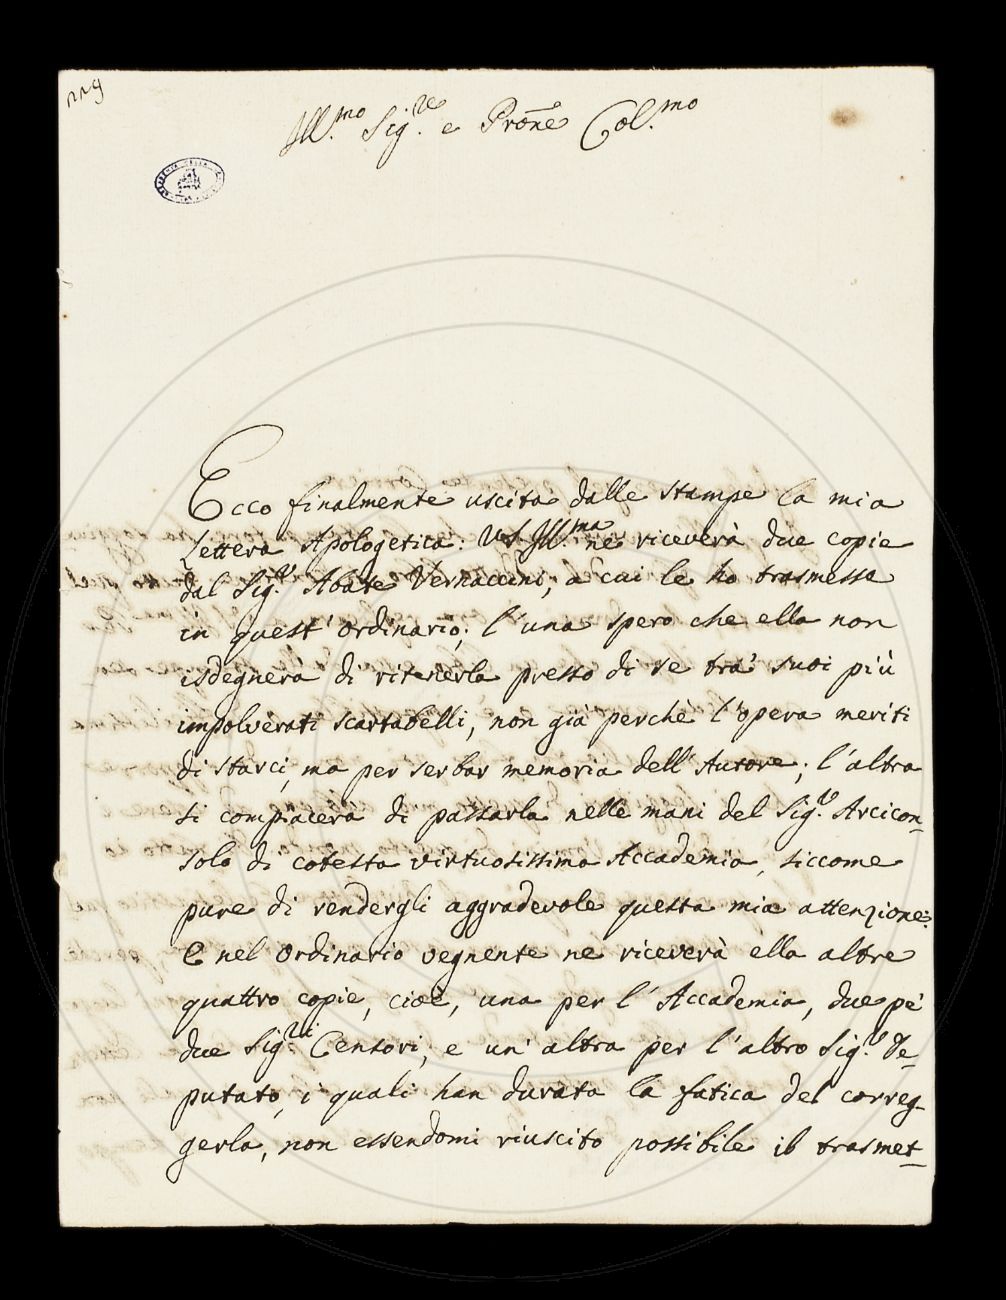 229
Ill.mo Sig.re e Prone Col.mo
Ecco finalmente uscita dalle stampe la mia
Lettera Apologetica: VS. Ill.ma ne riceverà due copie
dal Sig.r Abate Vernaccini, a cui le ho trasmesse
in quest' ordinario; l'una spero che ella non
isdegnerà di ritenerla presso di se trà suoi più
impolverati scartabelli, non già perchè l'opera meriti
di starci, ma per serbar memoria dell'Autore; l'altra
si compiacerà di passarla nelle mani del Sig.r Arcicon-
solo di cotesta virtuosissima Accademia, siccome
pure di rendergli aggradevole questa mia attenzione:
E nel ordinario vegnente ne riceverà ella altre
quattro copie, cioè, una per l'Accademia, due pe'
due Sig.ri Censori, e un' altra per l'altro Sig.r De-
putato, i quali han durata la fatica del correg-
gerla, non essendomi riuscito possibile il trasmet-